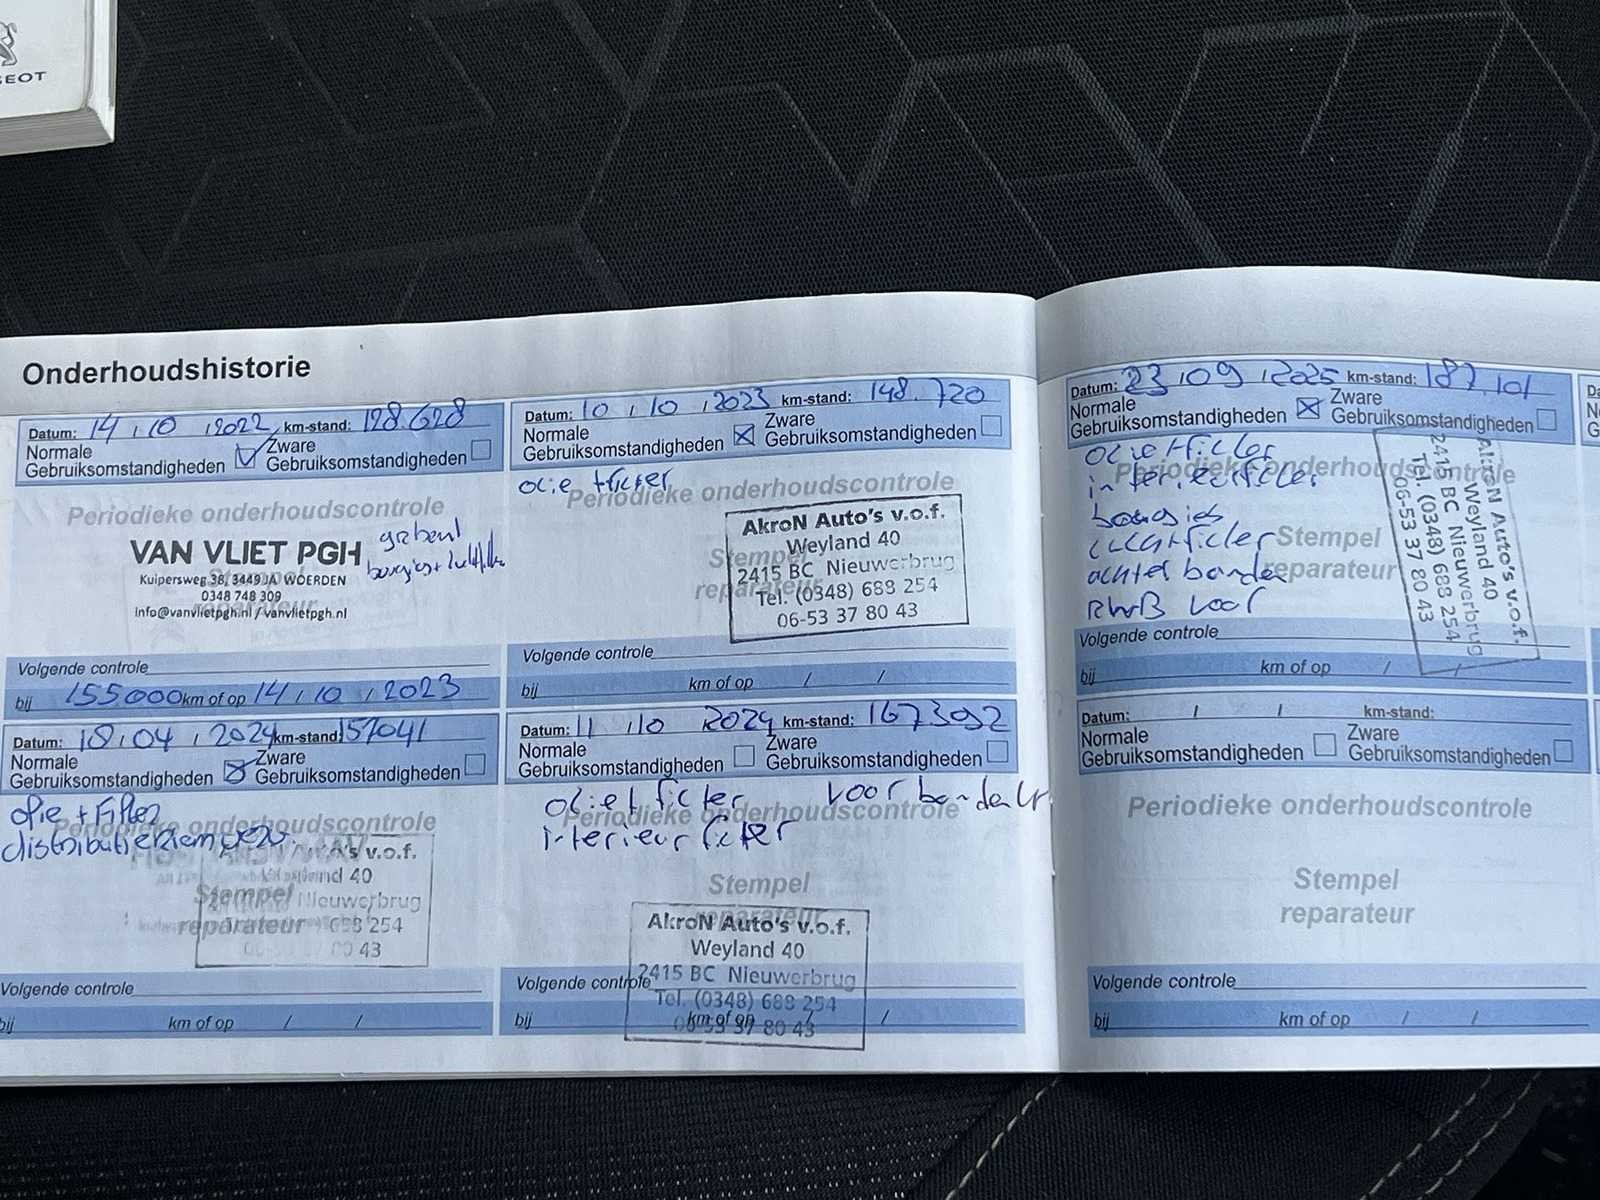 EOT
Onderhoudshistorie
Datum: 14 / 10 / 2022 km-stand: 128.628
Normale
Gebruiksomstandigheden
Zware
Gebruiksomstandigheden
Periodieke onderhoudscontrole
VAN VLIET PGH
Kuipersweg 38, 3449JA WOERDEN
0348 748 309
info@vanvlietpgh.nl / vanvlietpgh.nl
Stempel
reparateur
Volgende controle
bij 155.000 km of op 14 / 10 / 2023
Datum: 10 / 10 / 2023 km-stand: 148.720
Normale
Gebruiksomstandigheden
Zware
Gebruiksomstandigheden
olie + filter
Periodieke onderhoudscontrole
Stempel
reparateur
AkroN Auto's v.o.f.
Weyland 40
2415 BC Nieuwerbrug
Tel. (0348) 688 254
06-53 37 80 43
Volgende controle
bij km of op / /
Datum: 18 / 04 / 2024 km-stand:
Normale
Gebruiksomstandigheden
Zware
Gebruiksomstandigheden
olie + Filter
distributieriem
Periodieke onderhoudscontrole
Stempel
reparateur
v.o.f.
40
Nieuwerbrug
688 254
43
Volgende controle
bij km of op / /
Datum: 11 / 10 2024 km-stand: 167392
Normale
Gebruiksomstandigheden
Zware
Gebruiksomstandigheden
olie + filter voor banden
interieur filter
Periodieke onderhoudscontrole
Stempel
reparateur
AkroN Auto's v.o.f.
Weyland 40
2415 BC Nieuwerbrug
Tel. (0348) 688 254
06-53 37 80 43
Volgende controle
bij km of op / /
Datum: 23 / 09 / 2025 km-stand: 187.101
Normale
Gebruiksomstandigheden
Zware
Gebruiksomstandigheden
olie + filter
interieurfilter
bougies
luchtfilter
achter banden
voor
Periodieke onderhoudscontrole
Stempel
reparateur
AkroN Auto's v.o.f.
Weyland 40
2415 BC Nieuwerbrug
Tel. (0348) 688 254
06-53 37 80 43
Volgende controle
bij km of op / /
Datum: / / km-stand:
Normale
Gebruiksomstandigheden
Zware
Gebruiksomstandigheden
Periodieke onderhoudscontrole
Stempel
reparateur
Volgende controle
bij km of op / /